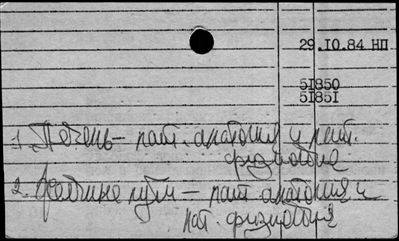 29.10.84 НП
51850
51851
1. Печень – пат. анатомия и пат.
физиология
2. Желчные пути – пат анатомия и
пат. физиология